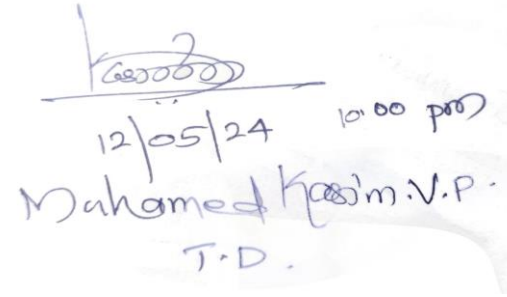 12/05/24 10.00 pm
Mahamed Kasim.V.P.
T.D.